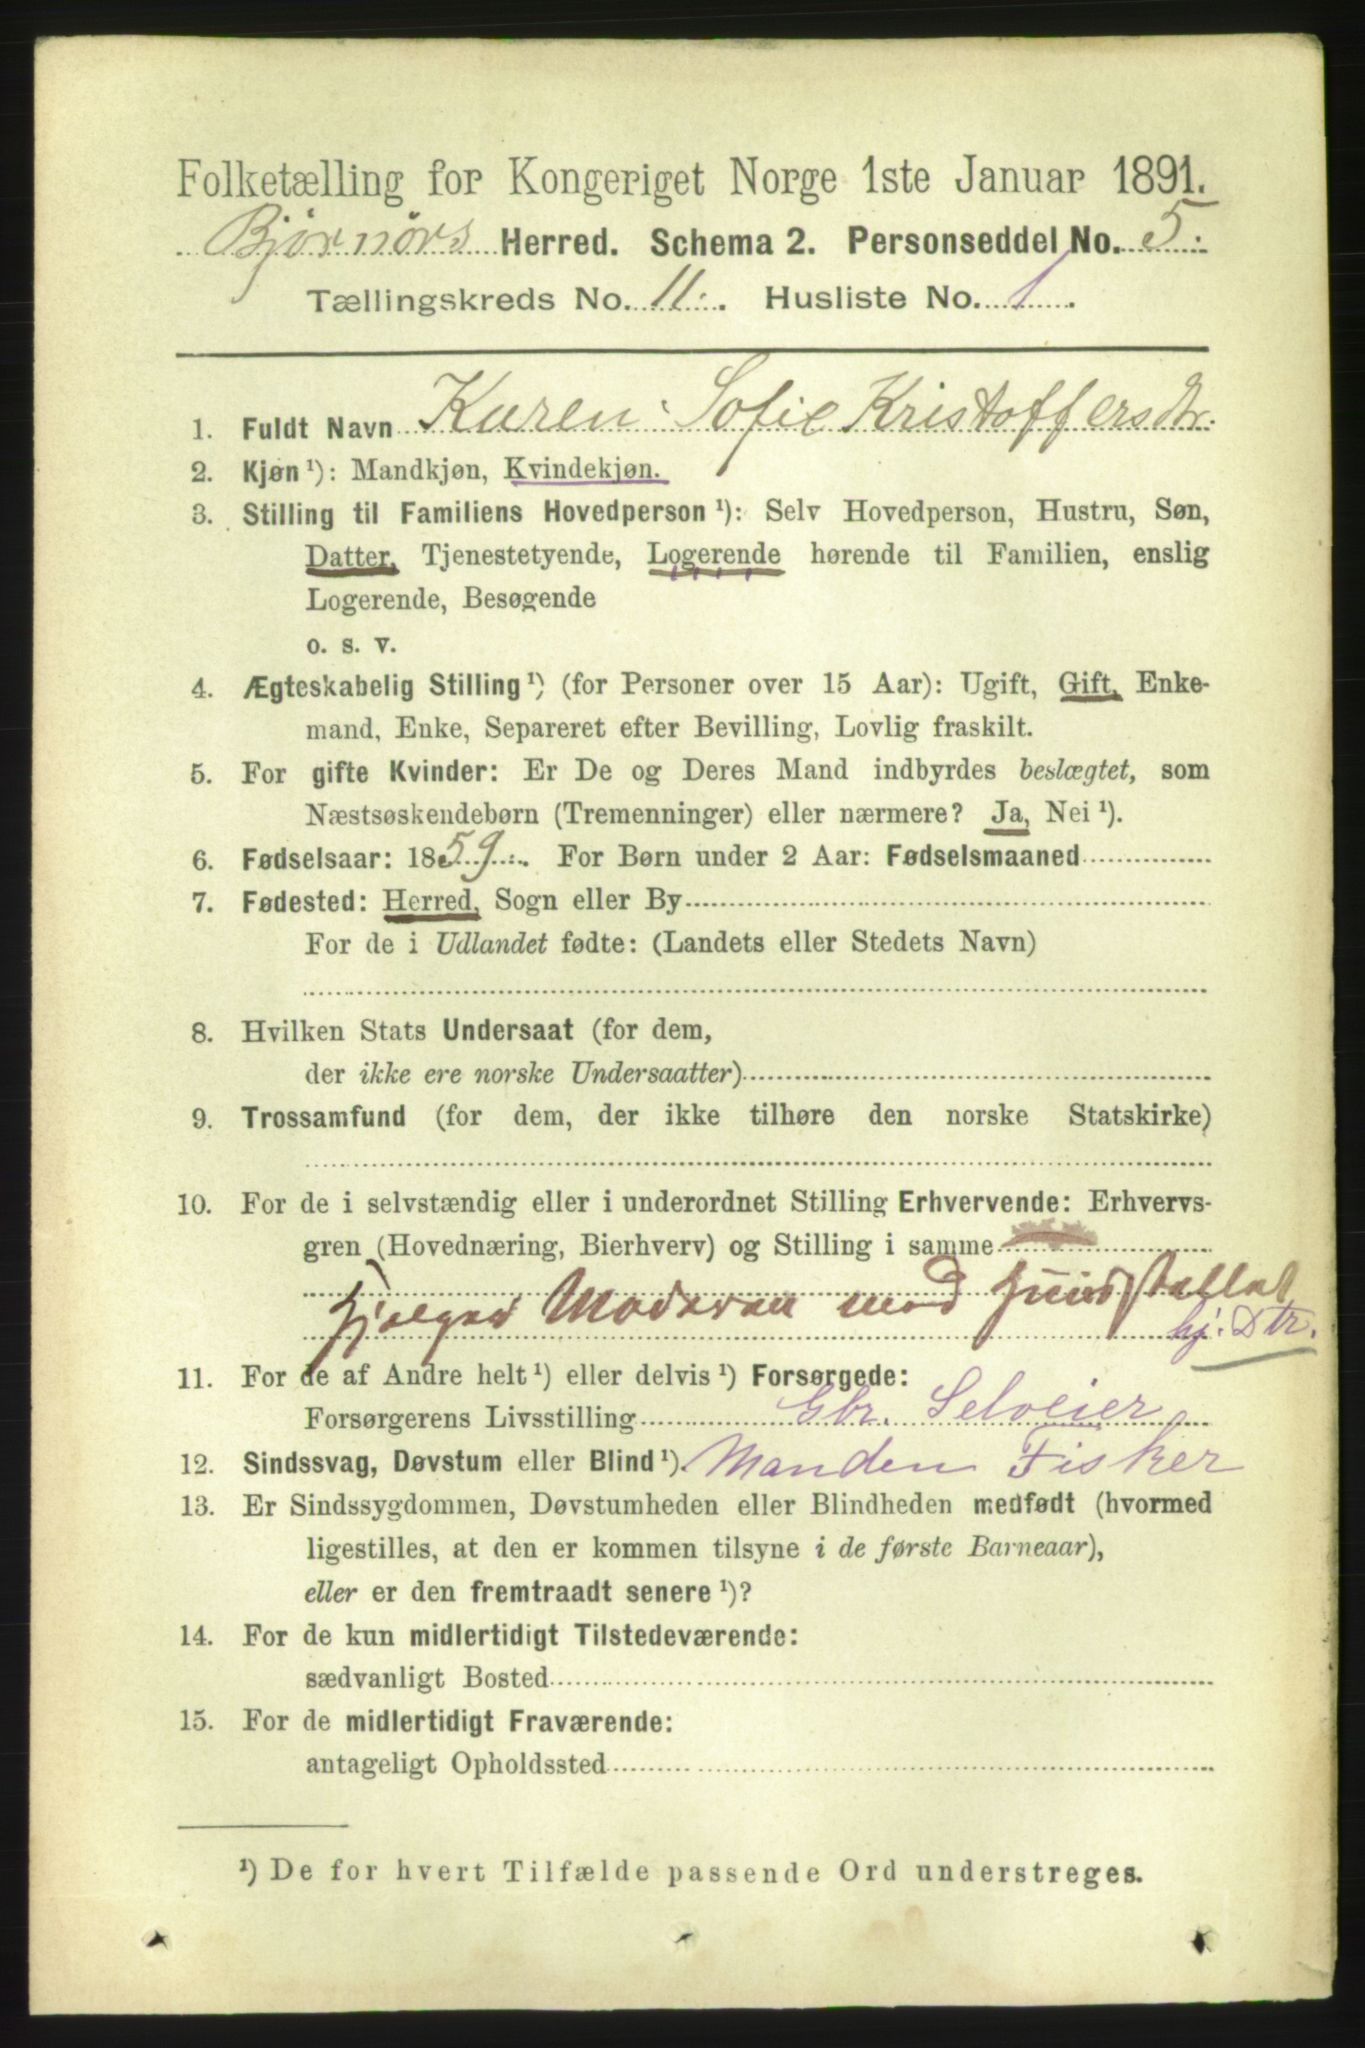 Folketælling for Kongeriget Norge 1ste Januar 1891.
Bjørnørs Herred. Schema 2. Personseddel No. 5.
Tællingskreds No. 11. Husliste No. 1.
1. Fuldt Navn Karen Sofie Kristoffersdtr.
2. Kjøn ¹): Mandkjøn, Kvindekjøn.
3. Stilling til Familiens Hovedperson ¹): Selv Hovedperson, Hustru, Søn,
Datter, Tjenestetyende, Logerende hørende til Familien, enslig
Logerende, Besøgende
o. s. v.
4. Ægteskabelig Stilling ¹) (for Personer over 15 Aar): Ugift, Gift, Enke-
mand, Enke, Separeret efter Bevilling, Lovlig fraskilt.
5. For gifte Kvinder: Er De og Deres Mand indbyrdes beslægtet, som
Næstsøskendebørn (Tremenninger) eller nærmere? Ja, Nei ¹).
6. Fødselsaar: 1859. For Børn under 2 Aar: Fødselsmaaned
7. Fødested: Herred, Sogn eller By
For de i Udlandet fødte: (Landets eller Stedets Navn)
8. Hvilken Stats Undersaat (for dem,
der ikke ere norske Undersaatter)
9. Trossamfund (for dem, der ikke tilhøre den norske Statskirke)
10. For de i selvstændig eller i underordnet Stilling Erhvervende: Erhvervs-
gren (Hovednæring, Bierhverv) og Stilling i samme
hjelper Moderen med
hj. Dtr.
11. For de af Andre helt ¹) eller delvis ¹) Forsørgede:
Forsørgerens Livsstilling Gbr. Selveier
12. Sindssvag, Døvstum eller Blind ¹). Manden Fisker
13. Er Sindssygdommen, Døvstumheden eller Blindheden medfødt (hvormed
ligestilles, at den er kommen tilsyne i de første Barneaar),
eller er den fremtraadt senere ¹)?
14. For de kun midlertidigt Tilstedeværende:
sædvanligt Bosted
15. For de midlertidigt Fraværende:
antageligt Opholdssted
¹) De for hvert Tilfælde passende Ord understreges.